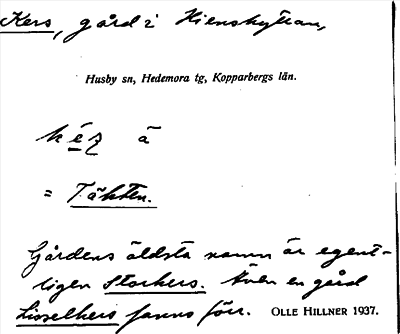 Kers, gård i Hienshyttan,
Husby sn, Hedemora tg, Kopparbergs län.
ké̱ẕ ä
= Täkten.
Gårdens äldsta namn är egent-
ligen Storkers. Även en gård
Lisselkers fanns förr. OLLE HILLNER 1937.